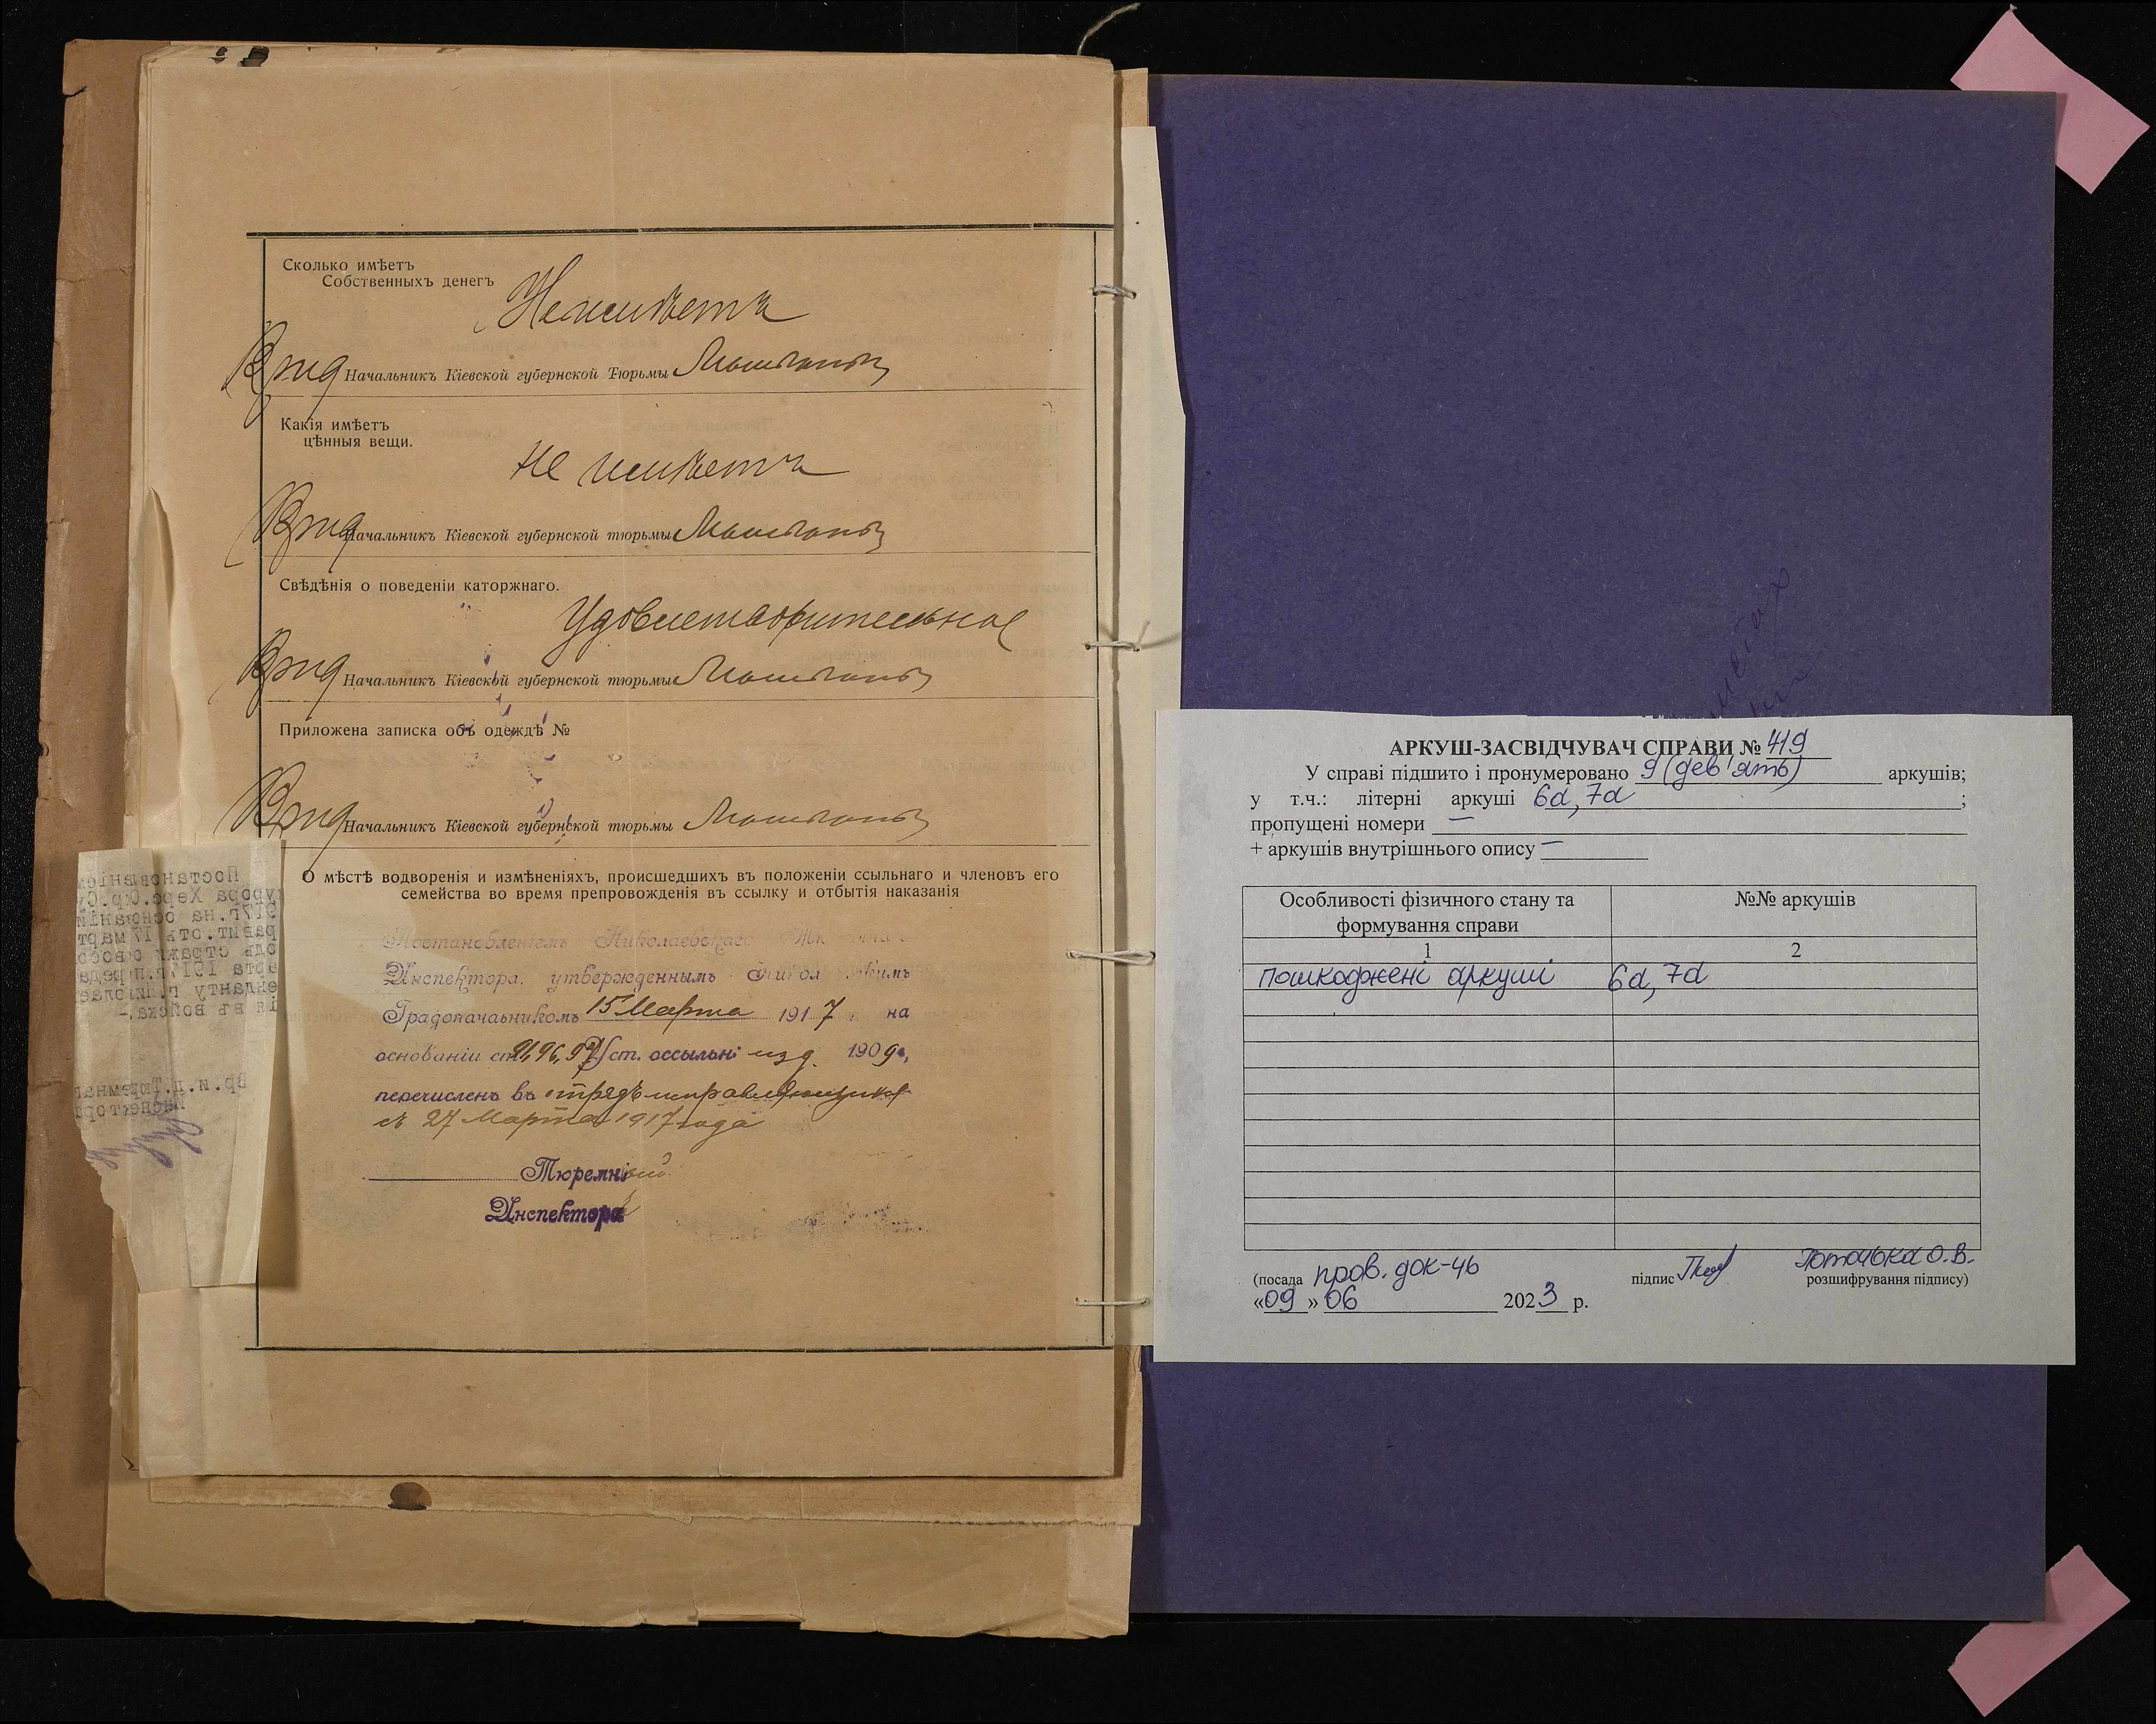 Сколько имѣетъ
Собственныхъ денегъ
Неимѣетъ
Врид Начальникъ Кіевской губернской Тюрьмы
Какія имѣетъ
цѣнныя вещи.
Не имѣетъ
Врид Начальникъ Кіевской губернской тюрьмы
Свѣдѣнія о поведеніи каторжнаго.
Удовлетворительное
Врид Начальникъ Кіевской губернской тюрьмы
Приложена записка объ одеждѣ №
Врид Начальникъ Кіевской губернской тюрьмы
О мѣстѣ водворенія и измѣненіяхъ, происшедшихъ въ положеніи ссыльнаго и членовъ его
семейства во время препровожденія въ ссылку и отбытія наказанія
Постановленіемъ Николаевскаго
Инспектора, утвержденнымъ
Градоначальникомъ 15 Марта 1917 на
основаніи ст. 96, 97 Уст. о ссыльн изд. 1909г.,
перечисленъ въ отрядъ исправляющихся
съ 27 Марта 1917 года
Тюремный
Инспекторъ
Постановленіем
курора Херс.Окр.Су
917г.на основаніи
равит.отъ 17 март
одъ стражи освобо
арта 1917г.и переда
енданту г.Николае
ія въ войска.-
Вр.и.д.Тюремнаг
Инспектора
АРКУШ-ЗАСВІДЧУВАЧ СПРАВИ № 419
У справі підшито і пронумеровано 9 (дев'ять) аркушів;
у т.ч.: літерні аркуші 6а, 7а ;
пропущені номери —
+ аркушів внутрішнього опису —
Особливості фізичного стану та
формування справи
№№ аркушів
1 2
пошкоджені аркуші 6а, 7а
(посада пров. док-чь підпис розшифрування підпису)
О.В.
«09» 06 2023 р.